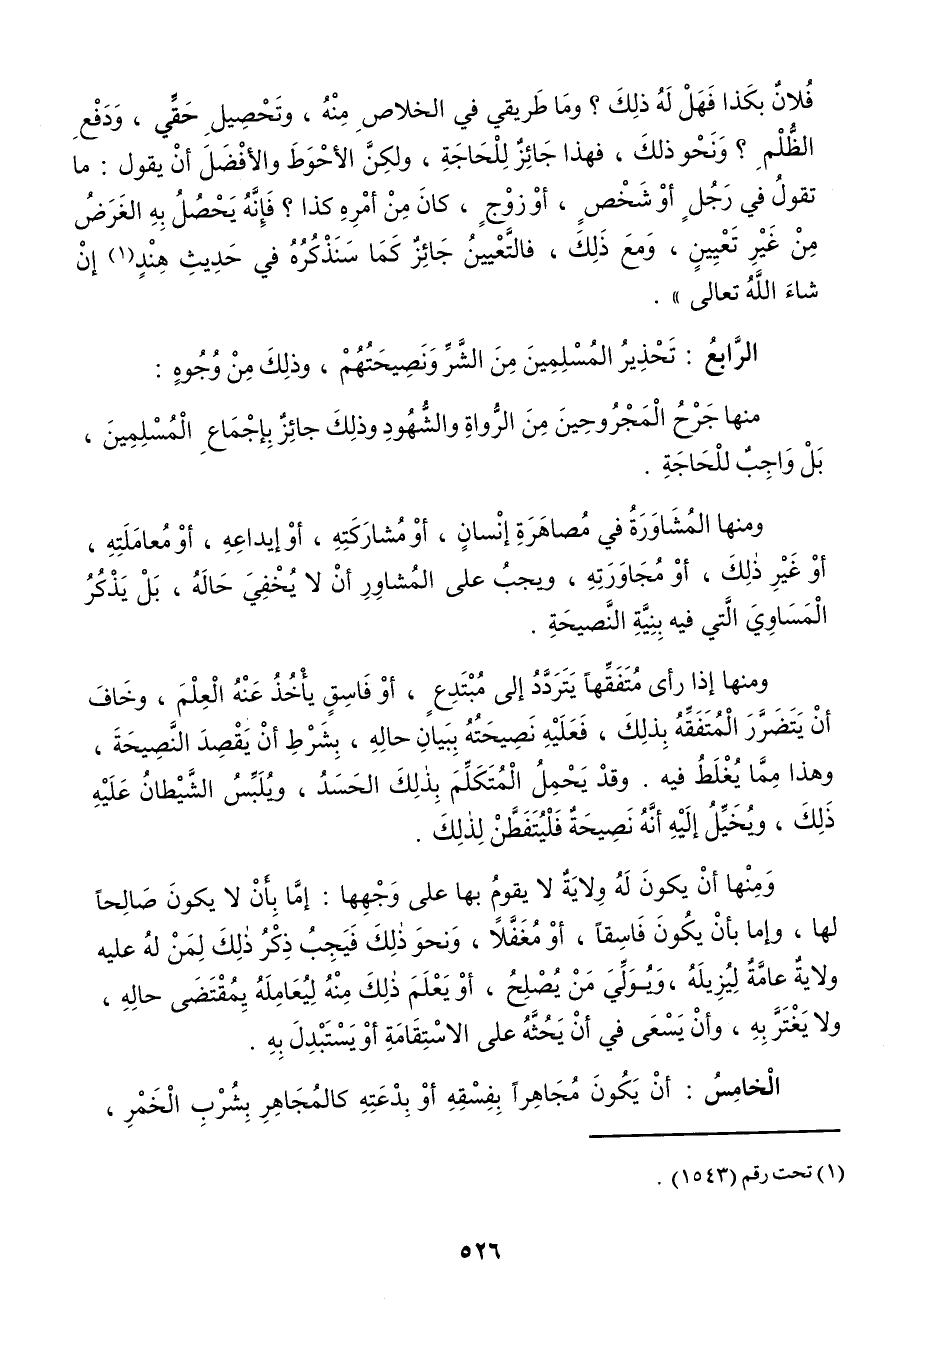 فُلانٌ بكَذا فَهَلْ لَهُ ذلِكَ ؟ ومَا طَريقي في الخلاصِ مِنْهُ ، وتَحْصِيلِ حَقِّي ، وَدَفْعِ
الظُّلْمِ ؟ وَنَحْو ذلكَ ، فهذا جَائِزٌ لِلْحَاجَةِ ، ولكِنَّ الأحْوَطَ والأفْضَلَ أنْ يقول : ما
تقولُ في رَجُلٍ أوْ شَخْصٍ ، أوْ زوْجٍ ، كانَ مِنْ أمْرِهِ كذا ؟ فَإنَّهُ يَحْصُلُ بِهِ الغَرَضُ
مِنْ غَيْرِ تَعْيينٍ ، وَمَعَ ذَلِكَ ، فالتَّعْيينُ جَائِزٌ كَمَا سَنَذْكُرُهُ في حَدِيثِ هِنْدٍ(١) إنْ
شاءَ اللَّهُ تعالى » .
الرَّابعُ : تَحْذِيرُ المُسْلِمِينَ مِنَ الشَّرِّ وَنَصِيحَتُهُمْ ، وذلِكَ مِنْ وُجُوهٍ :
منها جَرْحُ الْمَجْرُوحِينَ مِنَ الرُّواةِ والشُّهُودِ وذلِكَ جائِزٌ بِإجْماعِ الْمُسْلِمِينَ ،
بَلْ وَاجِبٌ لِلْحَاجَةِ .
ومنها المُشَاوَرَةُ في مُصاهَرَةِ إنْسانٍ ، أوْ مُشارَكَتِهِ ، أوْ إيداعِهِ ، أوْ مُعامَلَتِهِ ،
أوْ غَيْرِ ذٰلِكَ ، أوْ مُجَاوَرَتِهِ ، ويجبُ على المُشاوِرِ أنْ لا يُخْفِيَ حَالَهُ ، بَلْ يَذْكُرُ
الْمَسَاوِيَ الَّتي فيه بِنِيَّةِ النَّصيحَةِ .
ومنها إذا رأى مُتَفَقِّهاً يَتَرَدَّدُ إلى مُبْتَدِعٍ ، أوْ فَاسِقٍ يأْخُذُ عَنْهُ الْعِلْمَ ، وخَافَ
أنْ يَتَضَرَّرَ الْمُتَفَقِّهُ بِذلِكَ ، فَعَلَيْهِ نَصِيحَتُهُ بِبَيانِ حالِهِ ، بِشَرْطِ أنْ يَقْصِدَ النَّصِيحَةَ ،
وهذا مِمَّا يُغْلَطُ فيه . وقدْ يَحْمِلُ الْمُتَكَلِّمَ بِذٰلِكَ الحَسَدُ ، ويُلَبِّسُ الشَّيْطانُ عَلَيْهِ
ذَلِكَ ، ويُخَيِّلُ إلَيْهِ أنَّهُ نَصِيحَةٌ فَلْيُتَفَطَّنْ لِذٰلِكَ .
وَمِنْها أنْ يكونَ لَهُ وِلايَةٌ لا يقومُ بها على وَجْهِها : إمَّا بِأَنْ لا يكونَ صَالِحاً
لها ، وإما بأنْ يكُونَ فَاسِقاً ، أوْ مُغَفَّلًا ، وَنحوَ ذٰلِكَ فَيَجِبُ ذِكْرُ ذٰلِكَ لِمَنْ لهُ عليه
ولايةٌ عامَّةٌ لِيُزيلَهُ ،وَيُـولِّيَ مَنْ يُصْلِحُ ، أوْ يَعْلَمَ ذٰلِكَ مِنْهُ لِيُعامِلَهُ بِمُقْتَضَى حالِهِ ،
ولا يَغْتَرَّ بِهِ ، وأنْ يَسْعَى في أنْ يَحُثَّهُ على الاسْتِقَامَةِ أوْ يَسْتَبْدِلَ بِهِ .
الْخامِسُ : أنْ يَكُونَ مُجَاهِراً بِفِسْقِهِ أوْ بِدْعَتِهِ كالمُجَاهِرِ بِشُرْبِ الْخَمْرِ ،
(١) تحت رقم (١٥٤٣) .
٥٢٦